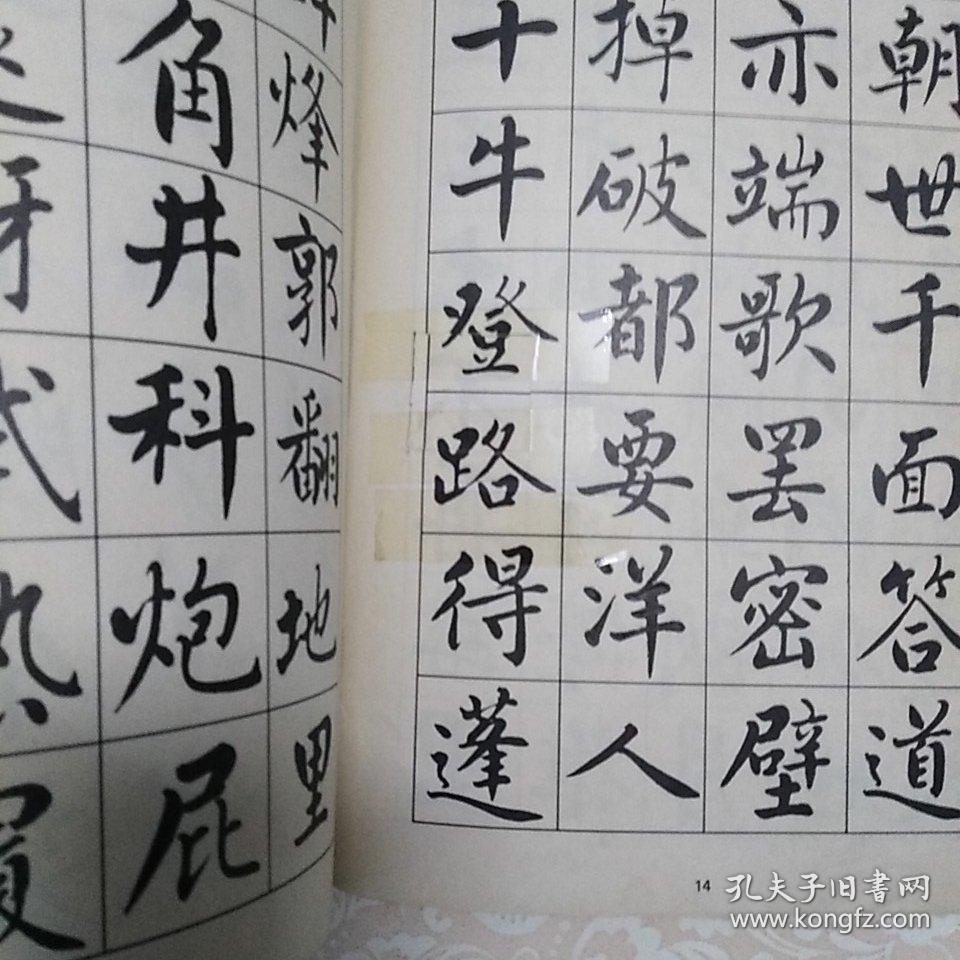 烽郭翻地里
角井科炮屁
朝世千面答道
亦端歌罢密壁
掉破都要洋人
十牛登路得蓬
14
孔夫子旧书网
www.kongfz.com